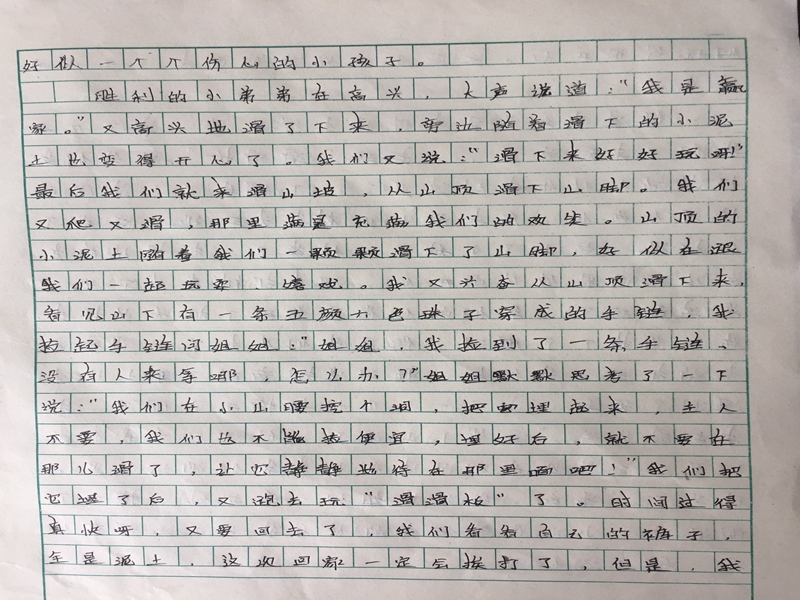 好似一个个伤心的小孩子。
胜利的小弟弟在高兴，大声说道：“我是赢
家。”又高兴地滑了下来，旁边随着滑下的小泥
土也变得开心了。我们又说：“滑下来好好玩呀！”
最后我们就来滑山坡，从山顶滑下山脚。我们
又爬又滑，那里满是充满我们的欢笑。山顶的
小泥土随着我们一颗颗滑下了山脚，好似在跟
我们一起玩耍、嬉戏。我又兴奋从山顶滑下来，
看见山下有一条五颜六色珠子穿成的手链，我
捡起手链问姐姐：“姐姐，我捡到了一条手链、
没有人来拿耶，怎么办？”姐姐默默思考了一下
说：“我们在小山腰挖个洞，把它埋起来，主人
不要，我们也不能捡便宜，埋好后，就不要在
那儿滑了，让它静静地待在那里面吧！”我们把
它埋了后，又跑去玩“滑滑梯”了。时间过得
真快呀，又要回去了，我们看看自己的裤子，
全是泥土，这次回家一定会挨打了，但是，我